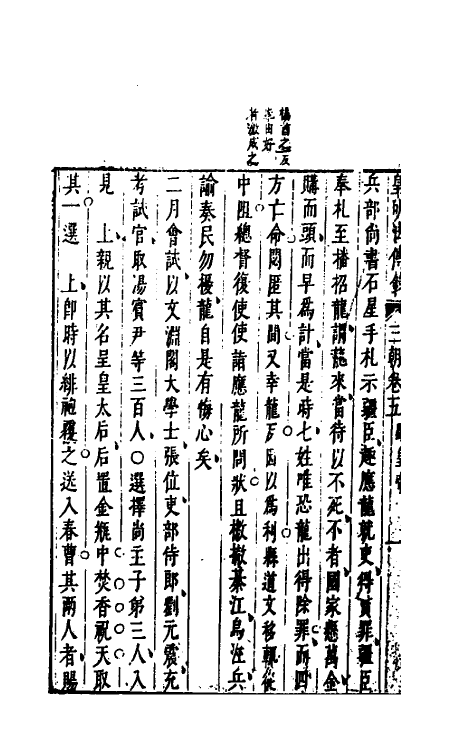 楊酋之反
率由奸
者激成之
皇明世傳錄 三朝卷五
兵部尚書石星手札示疆臣趣應龍就吏得貰罪疆臣
奉札至播招龍謂龍來當待以不死不者國家懸萬金
購而頭而早為計當是時七姓唯恐龍出得除罪而四
方亡命闒匿其間又幸龍反因以為利縣道文移輒從
中阻總督復使使諸應龍所問狀且檄撤綦江烏江兵
諭秦民勿擾龍自是有悔心矣
二月會試以文淵閣大學士張位吏部侍郎劉元震充
考試官取湯賓尹等三百人○選擇尚主子弟三人入
見 上親以其名呈皇太后后置金瓶中焚香祝天取
其一選 上卽時以緋袍覆之送入春曹其兩人者賜